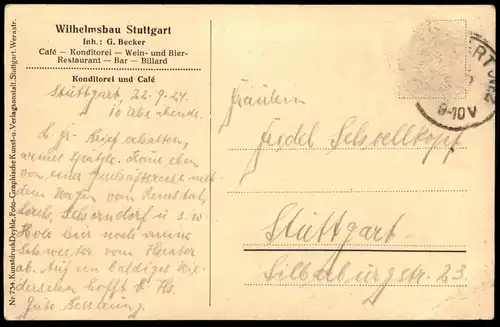 Wilhelmsbau Stuttgart
Inh.: G. Becker
Café — Konditorei — Wein- und Bier-
Restaurant — Bar — Billard
Konditorei und Café
Stuttgart, 22.9.24.
10 Uhr abends.
L. gr. Brief erhalten,
armes Spätzle. Komme eben
von einer Geschäftsreise mit
dem Wagen vom Remstal,
Lorch, Schorndorf u. s. w.
Hole hier noch meine
Schwester vom Theater
ab. Auf ein baldiges Wie-
dersehen hofft d. Hs.
Gute Besserung.
Nr. 734 Kunstdruck Dephle, Foto-Graphische Kunst- u. Verlagsanstalt, Stuttgart, Werastr.
9-10V
Fräulein
Fridel Schvellkopf
Stuttgart-
Silberburgstr. 23.